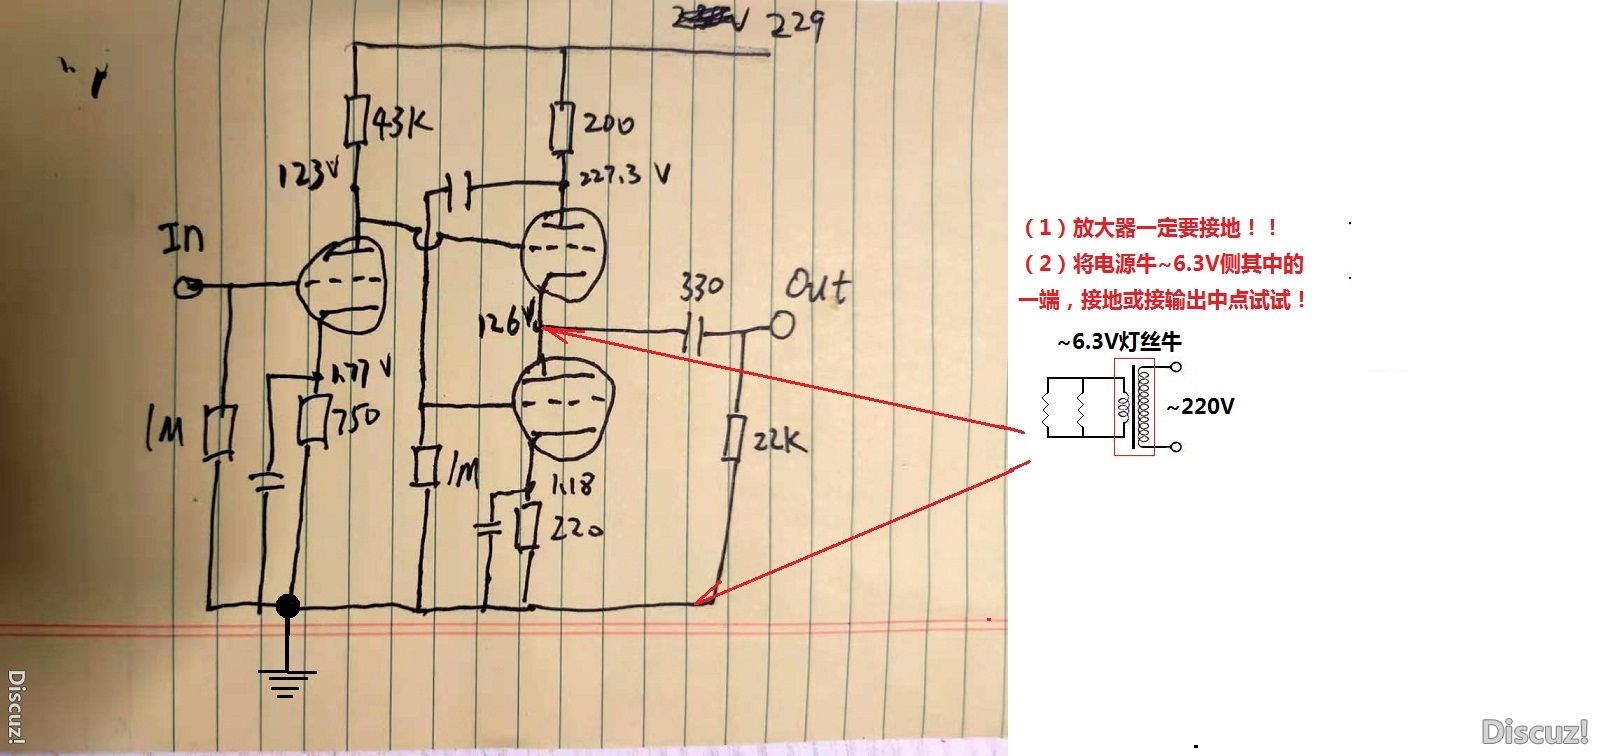 229
43K
200
123V
227.3 V
In
330
Out
126V
1.77 V
750
1M
1M
22K
1.18
220
(1)放大器一定要接地！！
(2)将电源牛~6.3V侧其中的
一端，接地或接输出中点试试！
~6.3V灯丝牛
~220V
Discuz!
Discuz!